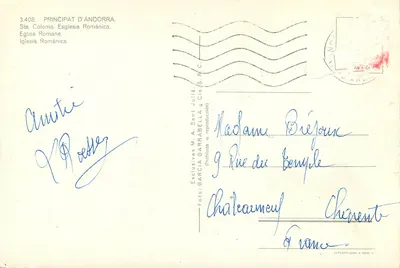 3.406. PRINCIPAT D'ANDORRA.
Sta. Coloma. Església Romànica.
Eglise Romane.
Iglesia Románica.
Amitié
Exclusives M. A. Sant Julià
Foto: GARCIA GARRABELLA y Cia.
(Prohibida la reproducción)
Madame Bréjoux
9 Rue du Temple
Châteauneuf Charente
France